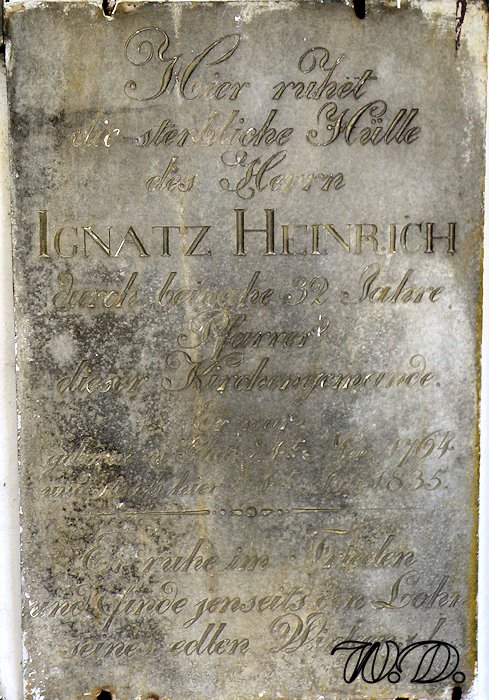 Hier ruhet
die sterbliche Hülle
des Herrn
IGNATZ HEINRICH
durch beinahe 32 Jahre
Pfarrer
dieser Kirchengemeinde.
Er war
1764
1835.
Er ruhe im Frieden
und finde jenseits den Lohn
seines edlen
W.D.